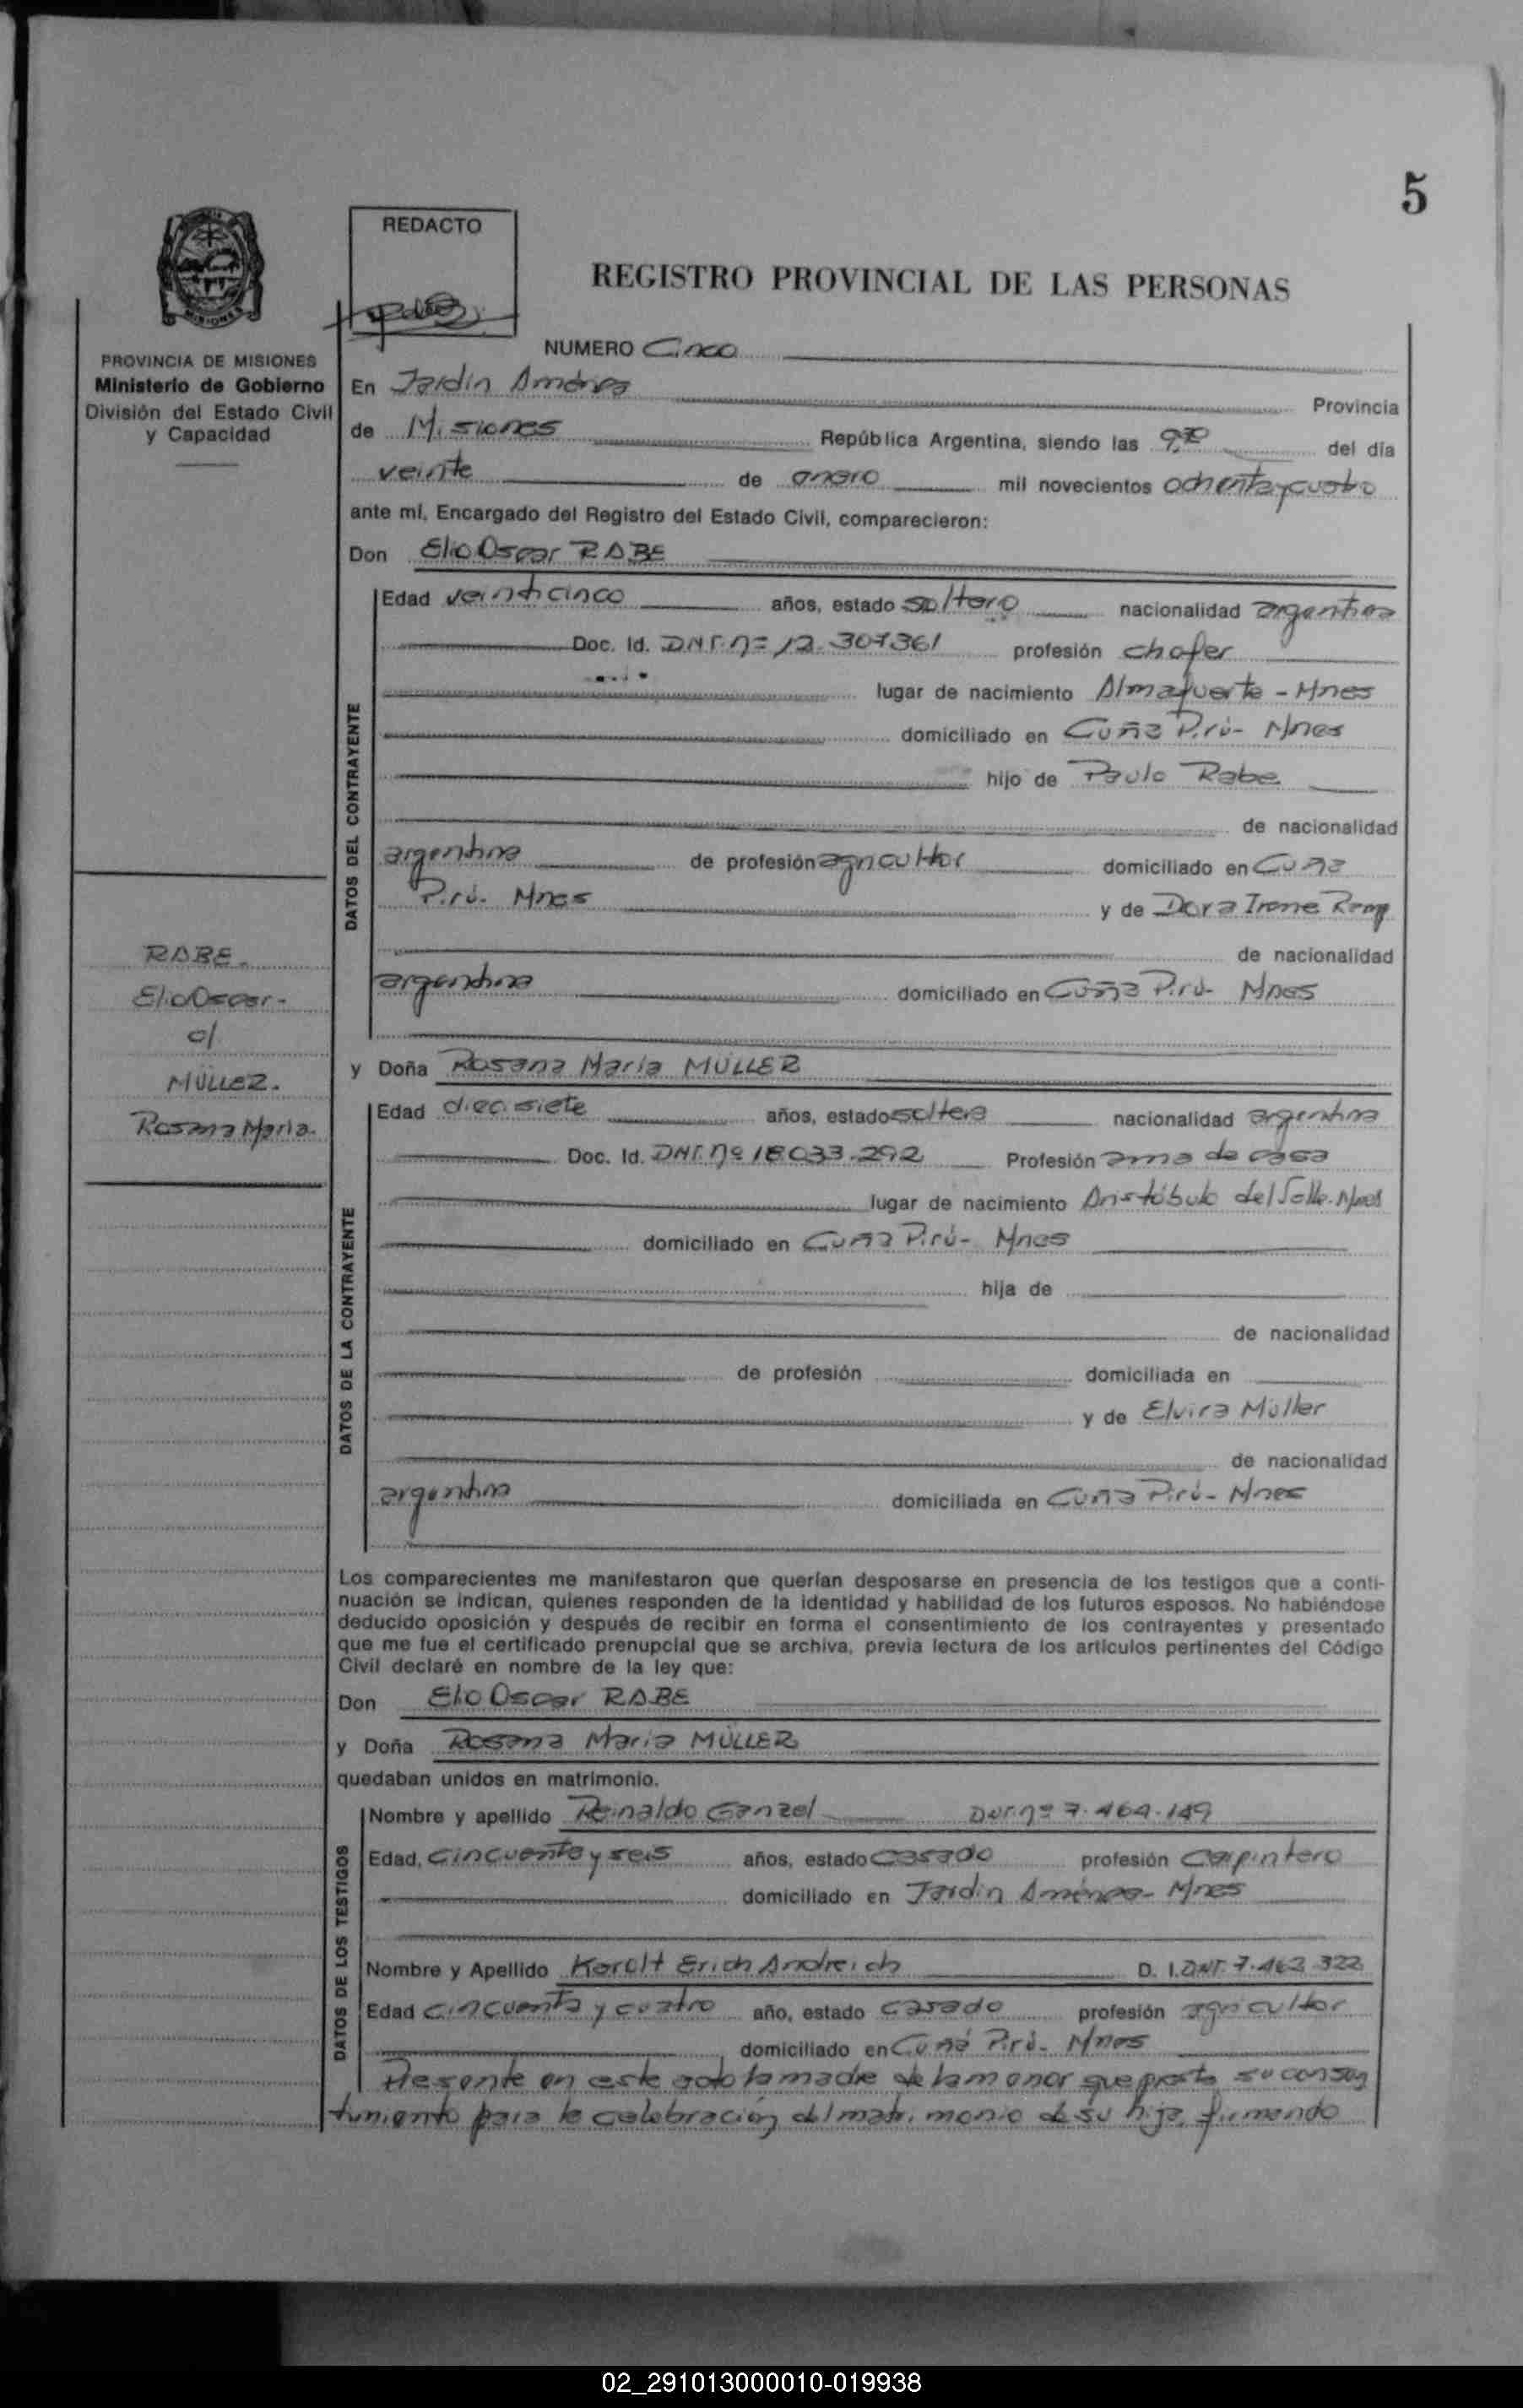 5
REDACTO
REGISTRO PROVINCIAL DE LAS PERSONAS
MISIONES
PROVINCIA DE MISIONES
Ministerio de Gobierno
División del Estado Civil
y Capacidad
RABE.
Elio Oscar-
c/
MÜLLER.
Rosana María.
NUMERO Cinco
En Jardín América Provincia
de Misiones República Argentina, siendo las 9,30 del día
veinte de enero mil novecientos ochenta y cuatro
ante mí, Encargado del Registro del Estado Civil, comparecieron:
Don Elio Oscar RABE
DATOS DEL CONTRAYENTE
Edad veinticinco años, estado soltero nacionalidad argentina
Doc. Id. DNI. nº 12.307361 profesión chofer
lugar de nacimiento Almafuerte - Mnes
domiciliado en Cuña Pirú- Mnes
hijo de Paulo Rabe
de nacionalidad
argentina de profesión agricultor domiciliado en Cuña
Pirú- Mnes y de Dora Irene
de nacionalidad
argentina domiciliado en Cuña Pirú- Mnes
y Doña Rosana María MÜLLER
DATOS DE LA CONTRAYENTE
Edad diecisiete años, estado soltera nacionalidad argentina
Doc. Id. DNI. nº 18033.292 Profesión ama de casa
lugar de nacimiento Aristóbulo del Valle- Mnes
domiciliado en Cuña Pirú- Mnes
hija de
de nacionalidad
de profesión domiciliada en
y de Elvira Müller
de nacionalidad
argentina domiciliada en Cuña Pirú- Mnes
Los comparecientes me manifestaron que querían desposarse en presencia de los testigos que a conti-
nuación se indican, quienes responden de la identidad y habilidad de los futuros esposos. No habiéndose
deducido oposición y después de recibir en forma el consentimiento de los contrayentes y presentado
que me fue el certificado prenupcial que se archiva, previa lectura de los artículos pertinentes del Código
Civil declaré en nombre de la ley que:
Don Elio Oscar RABE
y Doña Rosana María MÜLLER
quedaban unidos en matrimonio.
DATOS DE LOS TESTIGOS
Nombre y apellido Reinaldo Ganzel DNI. nº 7.464.149
Edad, cincuenta y seis años, estado casado profesión carpintero
domiciliado en Jardín América- Mnes
Nombre y Apellido Karolt Erich Andreich D. I. DNI 7.462.322
Edad cincuenta y cuatro año, estado casado profesión agricultor
domiciliado en Cuñá Pirú- Mnes
Presente en este acto la madre de la menor que presta su consen
timiento para la celebración del matrimonio de su hija, firmando
02_291013000010-019938